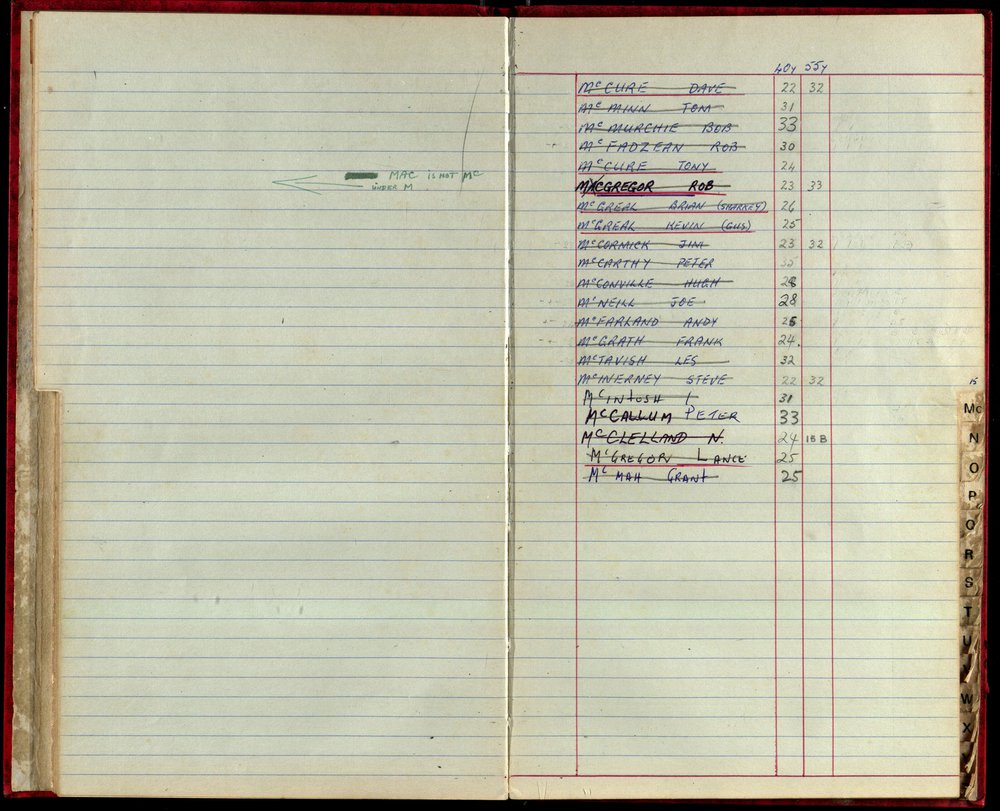 MAC IS NOT Mc
UNDER M
40Y 55Y
McCURE DAVE 22 32
McMINN TOM 31
McMURCHIE BOB 33
McFADZEAN ROB 30
McCURE TONY 24
MACGREGOR ROB 23 33
McGREAL BRIAN (SHARKEY) 26
McGREAL KEVIN (GUS) 25
McCORMICK JIM 23 32
McCARTHY PETER 35
McCONVILLE HUGH 28
McNEILL JOE 28
McFARLAND ANDY 25
McGRATH FRANK 24.
McTAVISH LES 32
McINERNEY STEVE 22 32
McINTOSH I 31
McCALLUM PETER 33
McCLELLAND N. 24 18B
McGREGOR LANCE 25
McMAH GRANT 25
15
Mc
N
O
P
Q
R
S
T
U
W
X